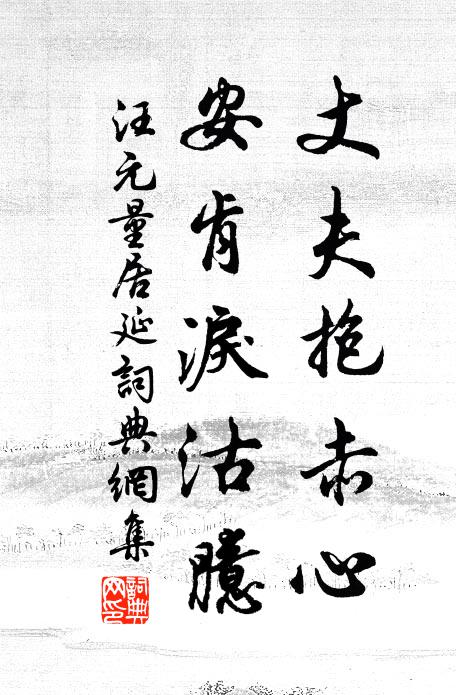 丈夫抱赤心
安肯淚沾臆
汪元量居延詞典網集
詞典网印